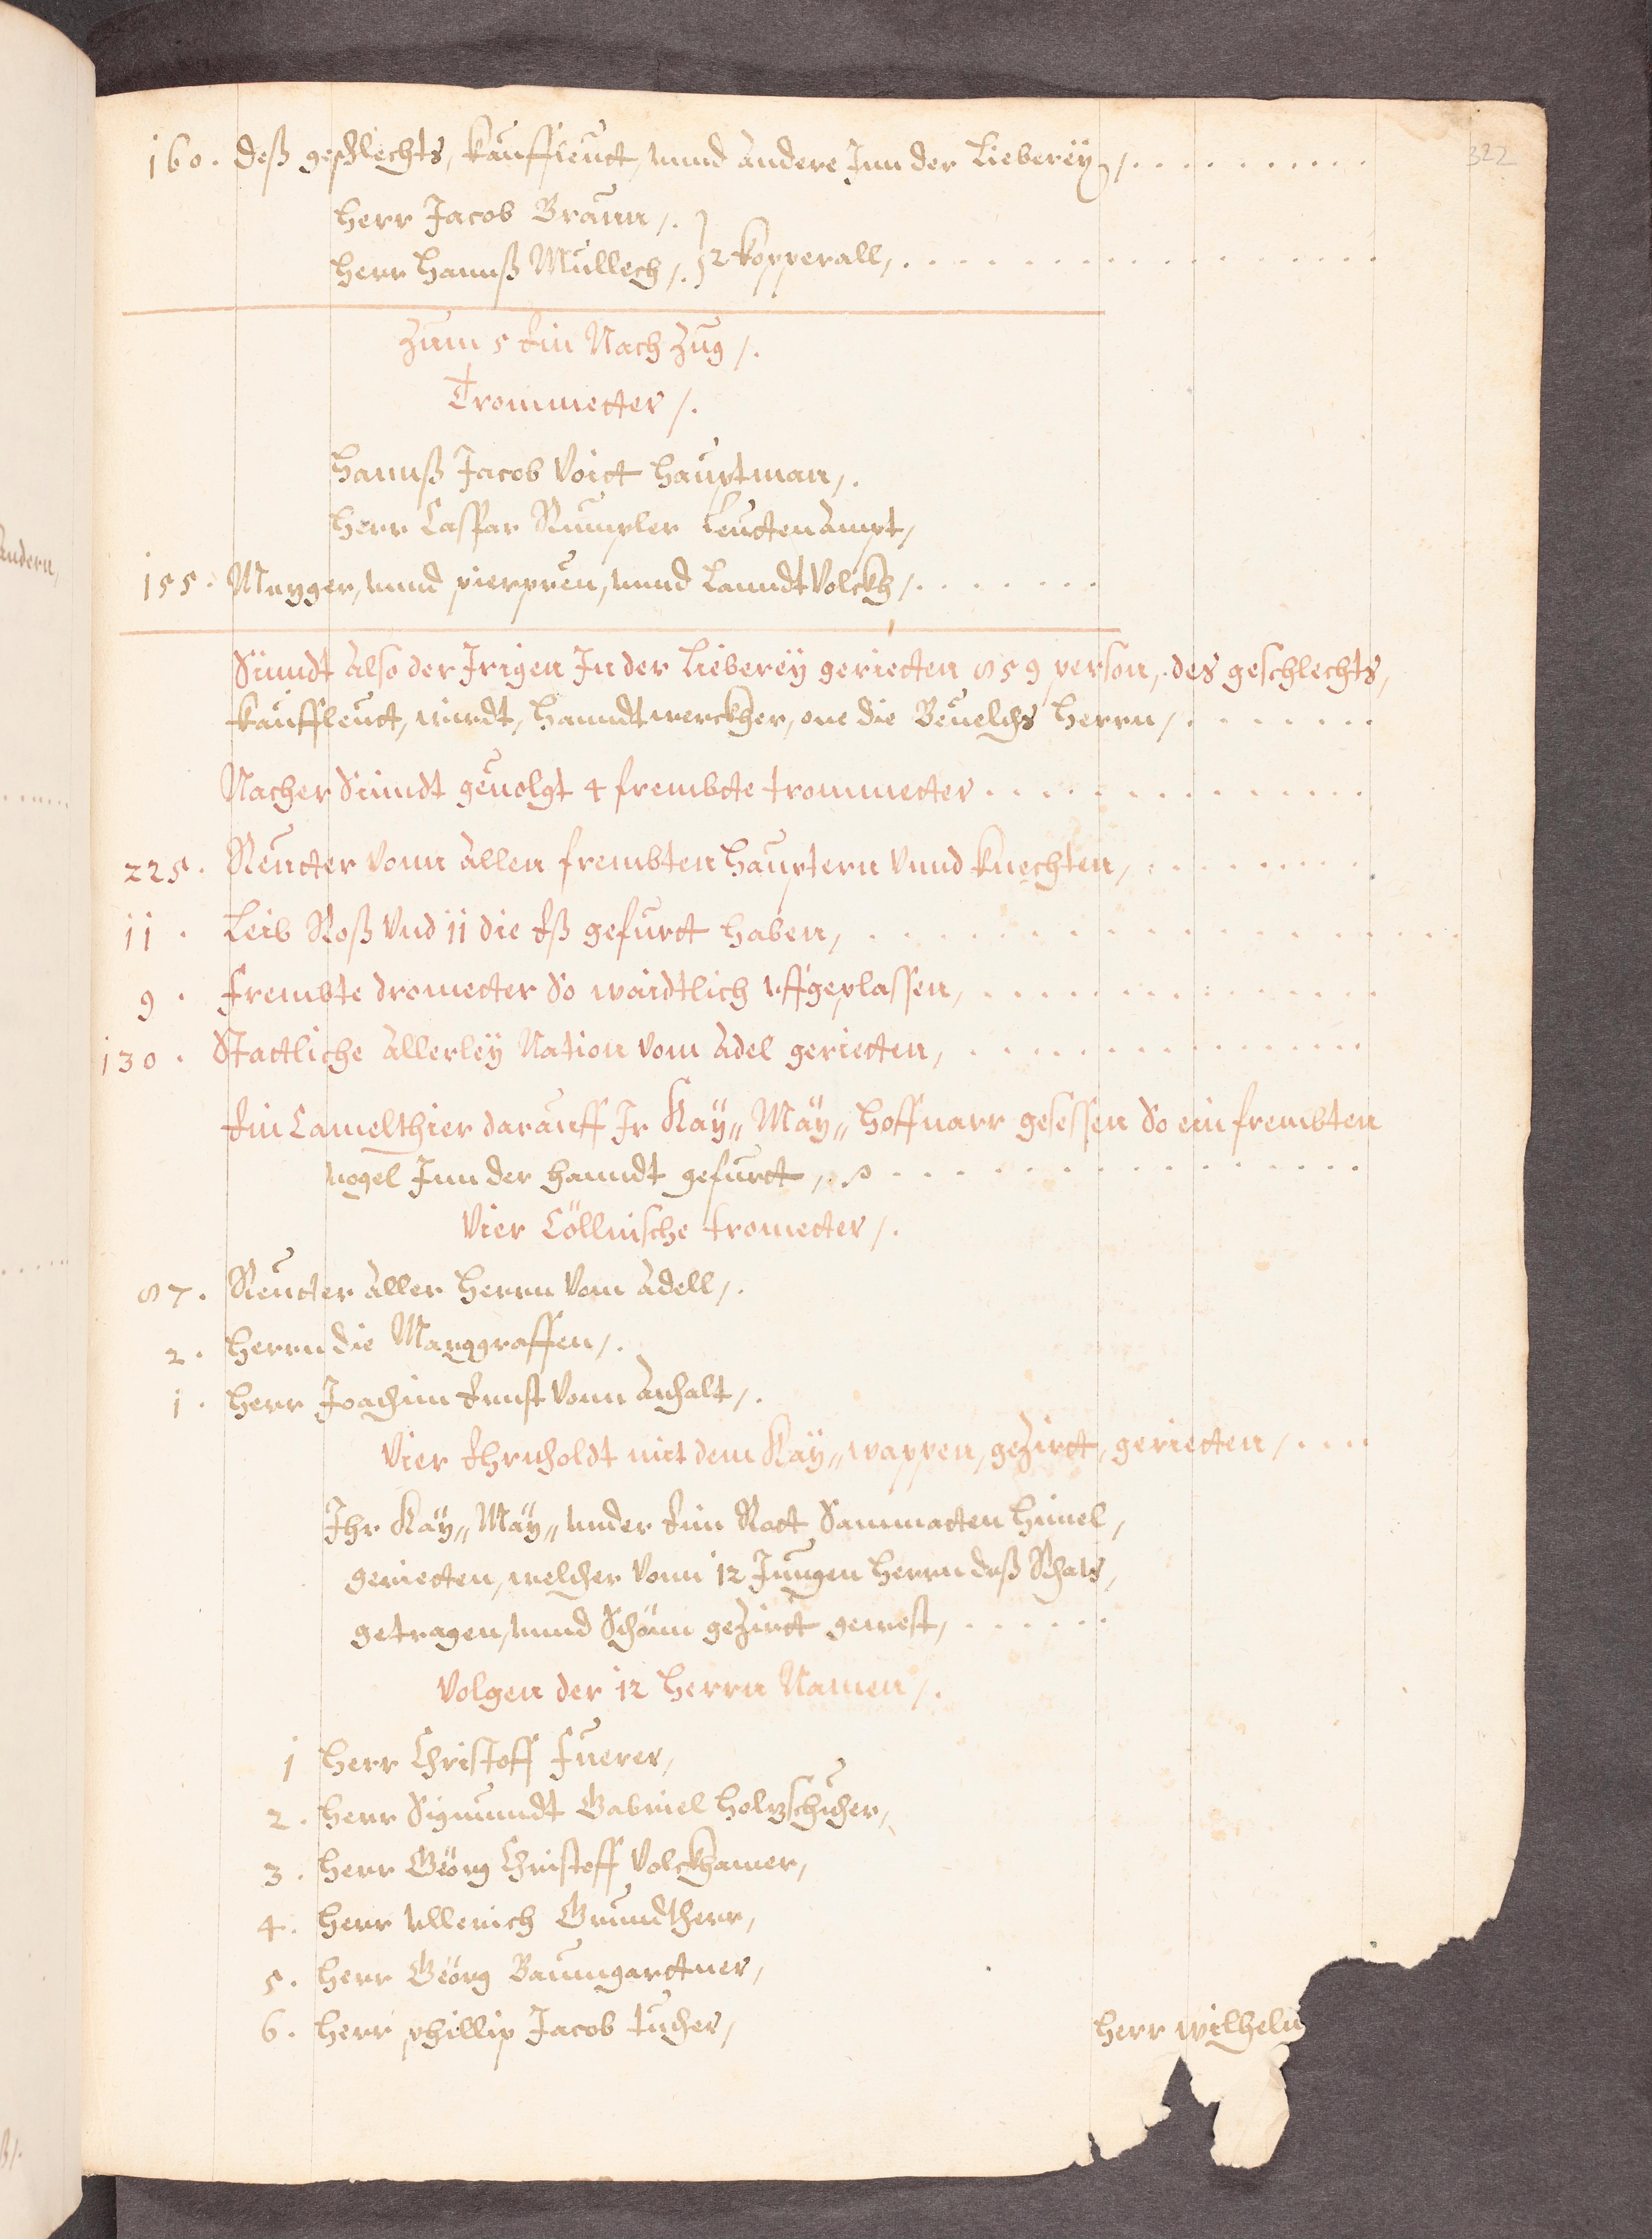 322
160. deß geschlechts, kauffleutt, unnd andere Inn der Lieberey, . . . . . . . . . .
herr Jacob Braun, /.
herr Hannß Mullech, /. } 2 kopperall, . . . . . . . . . . . . . . . .
Zum 5 Ein Nach Zug /.
Trommetter /.
Hannß Jacob Voitt Hauptman, .
herr Casspar Rumpler Leuttenampt,
155. Mezger, unnd pierpreu, unnd Lanndt Volckh, . . . . . . .
Sinndt also der Irigen In der Lieberey gerietten 859 person, des geschlechts,
kauffleutt, wirdt, Hanndtwerckher, one die Beuelchs herrn, . . . . . . .
Nacher Sinndt geuolgt 4 frembtte trommetter . . . . . . . . . . . .
225. Reutter vonn allen frembten Hauptern vnnd knechten, . . . . . . . . .
11. Leib Roß vnd 11 die Eß gefurtt haben, . . . . . . . . . . . . . . . .
9. Frembte drometter So waidtlich vffgeplassen, . . . . . . . . . . . . .
130. Stattliche allerley Nation vom adel gerietten, . . . . . . . . . . . . .
Ein Camelthier darauff Ir Kay„ May„ Hoffnarr gesessen So ein frembten
vogel Inn der hanndt gefurtt, . . . . . . . . . . . . . .
Vier Cöllnische trometter /.
87. Reutter aller herrn vom adell, /.
2. herrn die Marggraffen, /.
1. herr Joachim Ernst vonn anhalt, /.
Vier Ehrnholdt mit dem Kay„ wappen, geZirtt, gerietten, . . . .
Ihr Kay„ May„ under Eim Rott Sammatten himel,
gerietten, welcher vonn 12 Jungen herrn deß Rhats,
getragen, unnd Schönn geZirtt gewest, . . . . . .
Volgen der 12 herrn Namen, /.
1 herr Christoff Fuerer,
2. herr Sigmundt Gabriel Holzschuher,
3. herr Georg Christoff Volckhamer,
4. herr Ullerich Grundtherr,
5. herr Georg Baumgarttner,
6. herr phillip Jacob tucher,
herr wilhelm